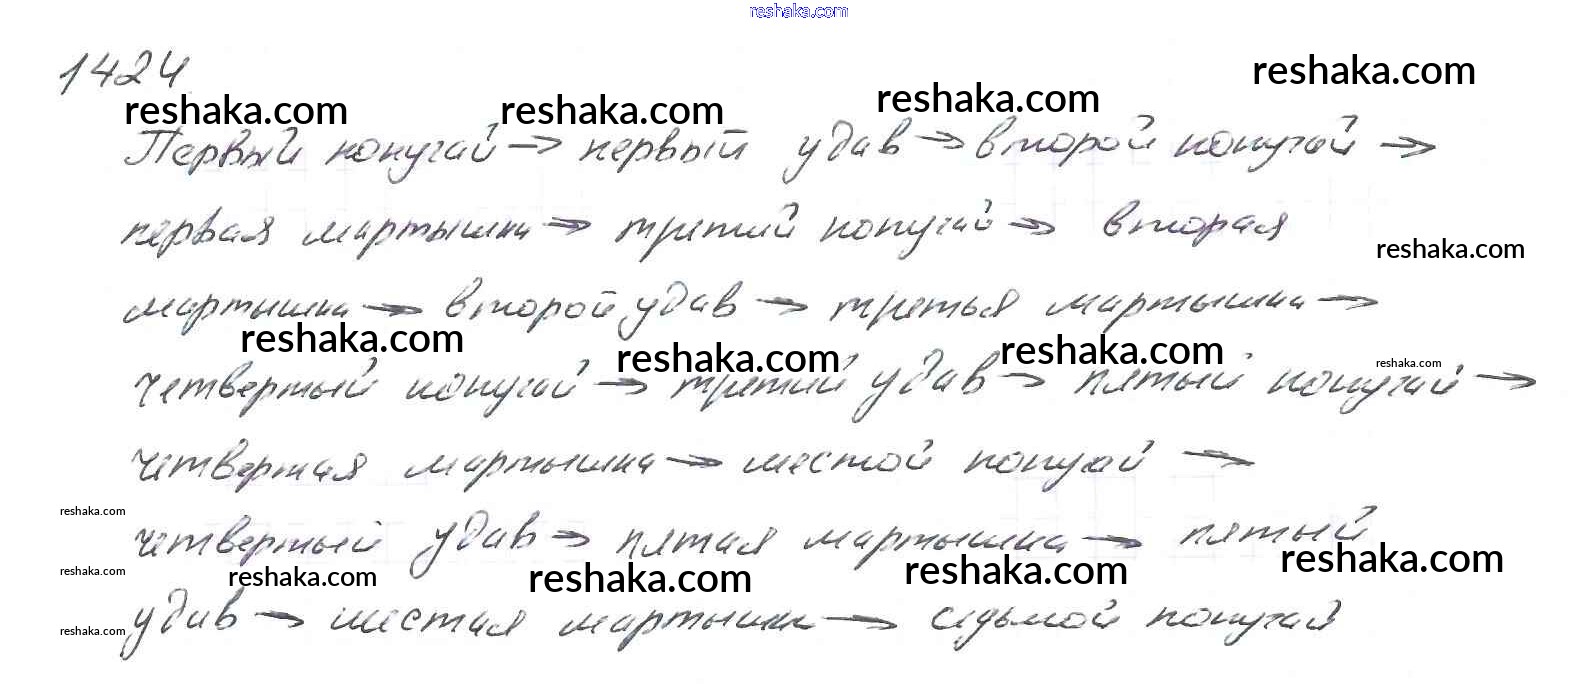 reshaka.com
1424
reshaka.com reshaka.com reshaka.com reshaka.com
Первый попугай → первый удав → второй попугай →
первая мартышка → третий попугай → вторая
reshaka.com
мартышка → второй удав → третья мартышка →
reshaka.com reshaka.com reshaka.com reshaka.com
четвертый попугай → третий удав → пятый попугай →
четвертая мартышка → шестой попугай →
reshaka.com
четвертый удав → пятая мартышка → пятый
reshaka.com reshaka.com reshaka.com reshaka.com reshaka.com
удав → шестая мартышка → седьмой попугай
reshaka.com